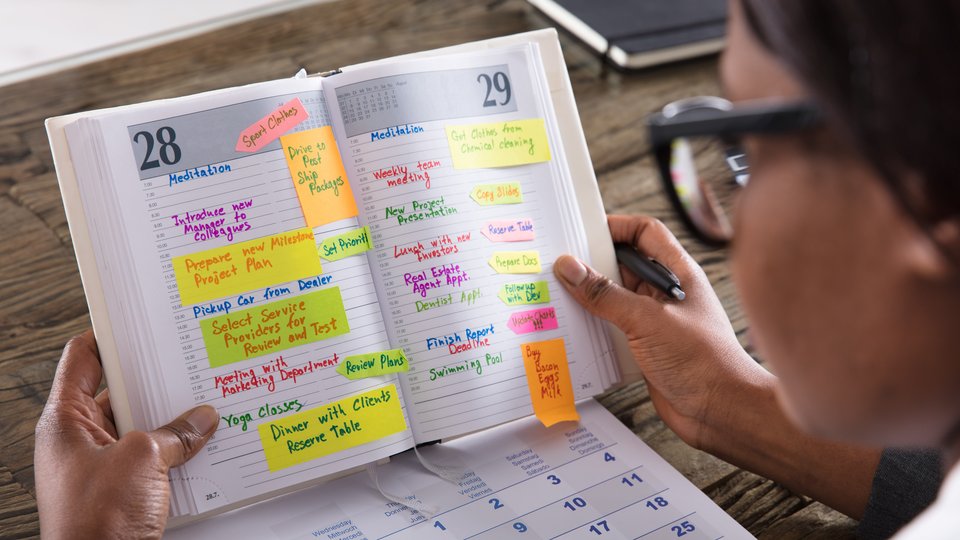 28
Sport Clothes
Meditation
Drive to
Post
Ship
Packages
Introduce new
Manager to
colleagues
Prepare new Milestone
Project Plan
Set Priority
Pickup Car from Dealer
Select Service
Providers for
Review and Test
Meeting with
Marketing Department
Review Plans
Yoga Classes
Dinner with Clients
Reserve Table
28.7.
29
Meditation
Get Clothes from
Chemical cleaning
Weekly team
meeting
Copy Slides
New Project
Presentation
Reserve Table
Lunch with new
Investors
Prepare Docs
Real Estate
Agent Appt.
Follow up
with Dev
Dentist Appt.
Update Charts
!!!
Finish Report
Deadline
Buy
Bacon
Eggs
Milk
Swimming Pool
29.7.
Wednesday
Mittwoch
Mercredi
Thursday
Friday
Freitag
Vendredi
Saturday
Samstag
Samedi
Sábado
Sunday
Sonntag
Dimanche
Domingo
1
2
3
4
9
10
11
17
18
25